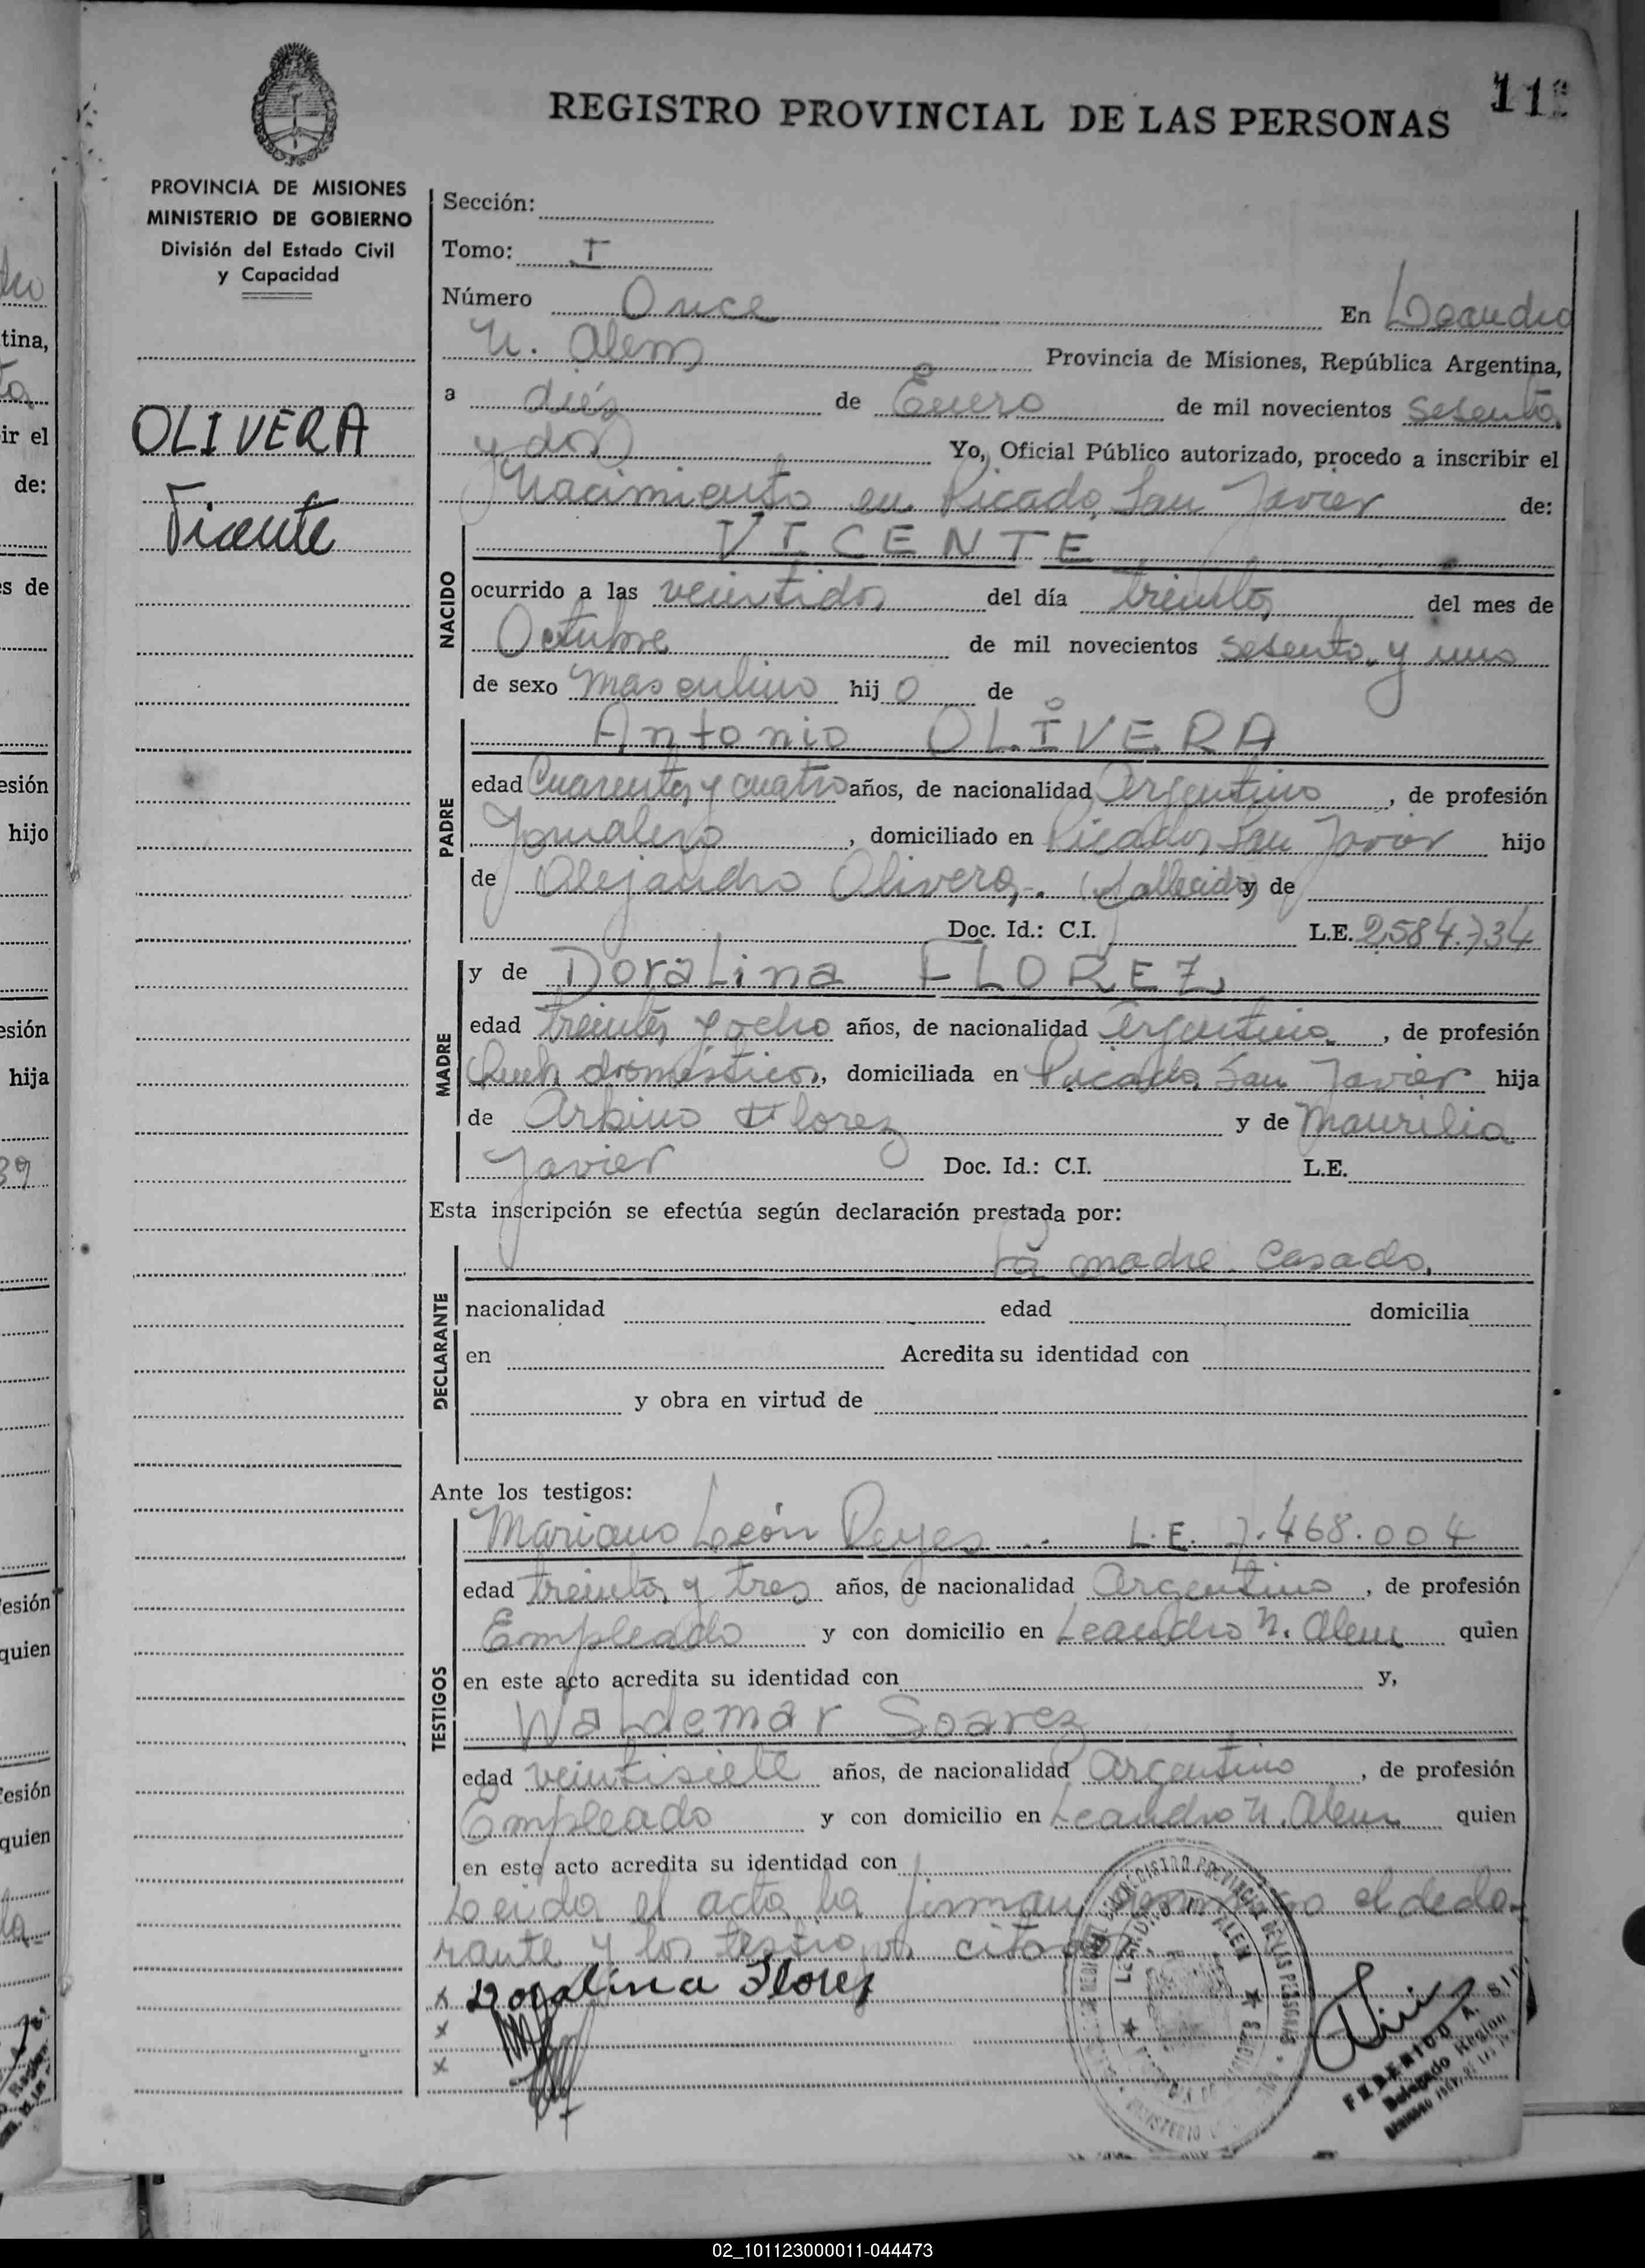 REGISTRO PROVINCIAL DE LAS PERSONAS
11
PROVINCIA DE MISIONES
MINISTERIO DE GOBIERNO
División del Estado Civil
y Capacidad
OLIVERA
Vicente
Sección:
Tomo: I
Número Once En Leandro
N. Alem Provincia de Misiones, República Argentina,
a diéz de Enero de mil novecientos sesenta
y dos Yo, Oficial Público autorizado, procedo a inscribir el
Nacimiento en Picada San Javier de:
NACIDO
VICENTE
ocurrido a las veintidos del día treinta del mes de
Octubre de mil novecientos sesenta y uno
de sexo masculino hijo de
PADRE
Antonio OLIVERA
edad Cuarenta y cuatro años, de nacionalidad Argentino, de profesión
Jornalero, domiciliado en Picada San Javier hijo
de Alejandro Olivera.- (fallecido) y de
Doc. Id.: C.I. L.E. 2584.734
MADRE
y de Doralina FLOREZ
edad treinta y ocho años, de nacionalidad Argentina, de profesión
Queh domésticos, domiciliada en Picada San Javier hija
de Arbino Florez y de Maurilia
Javier Doc. Id.: C.I. L.E.
Esta inscripción se efectúa según declaración prestada por:
DECLARANTE
la madre. Casada.
nacionalidad edad domicilia
en Acredita su identidad con
y obra en virtud de
Ante los testigos:
TESTIGOS
Mariano León Reyes L.E. 7.468.004
edad treinta y tres años, de nacionalidad Argentino, de profesión
Empleado y con domicilio en Leandro N. Alem quien
en este acto acredita su identidad con y,
Waldemar Soarez
edad veintisiete años, de nacionalidad Argentino, de profesión
Empleado y con domicilio en Leandro N. Alem quien
en este acto acredita su identidad con
Leida el acta la firman conmigo el decla-
rante y los testigos citados.
x Doralina Florez
x
x
LEANDRO N. ALEM
FEDERICO A.
Delegado
02_101123000011-044473